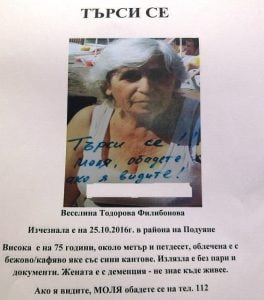 ТЪРСИ СЕ
Търси се!!!
Моля, обадете
ако я видите!
Веселина Тодорова Филибонова
Изчезнала е на 25.10.2016г. в района на Подуяне
Висока е на 75 години, около метър и петдесет, облечена е с
бежово/кафяво яке със сини кантове. Излязла е без пари и
документи. Жената е с деменция - не знае къде живее.
Ако я видите, МОЛЯ обадете се на тел. 112